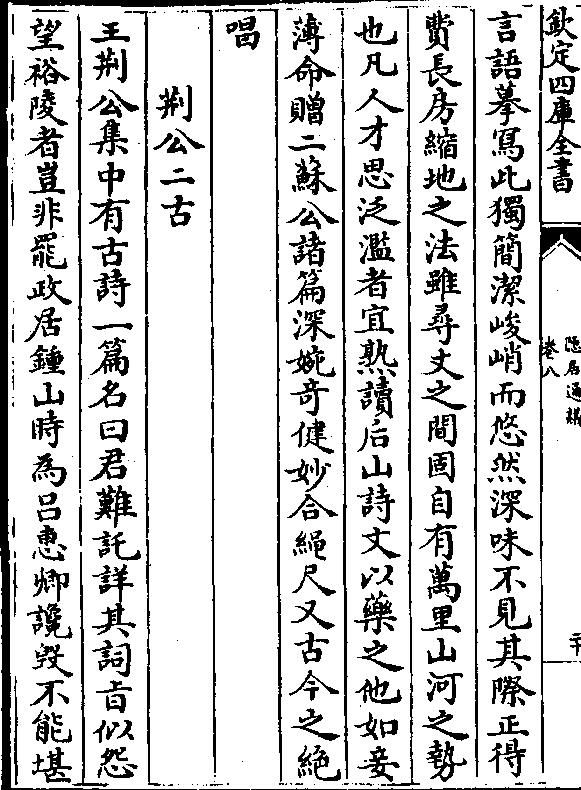 欽定四庫全書
隱居通議
卷八
二十
言語摹寫此獨簡潔峻峭而悠然深味不見其際正得
費長房縮地之法雖尋丈之間固自有萬里山河之勢
也凡人才思泛濫者宜熟讀后山詩文以藥之他如妾
薄命贈二蘇公諸篇深婉奇健妙合繩尺又古今之絶
唱
荆公二古
王荆公集中有古詩一篇名曰君難託詳其詞旨似怨
望裕陵者豈非罷政居鍾山時為吕惠卿讒毀不能堪